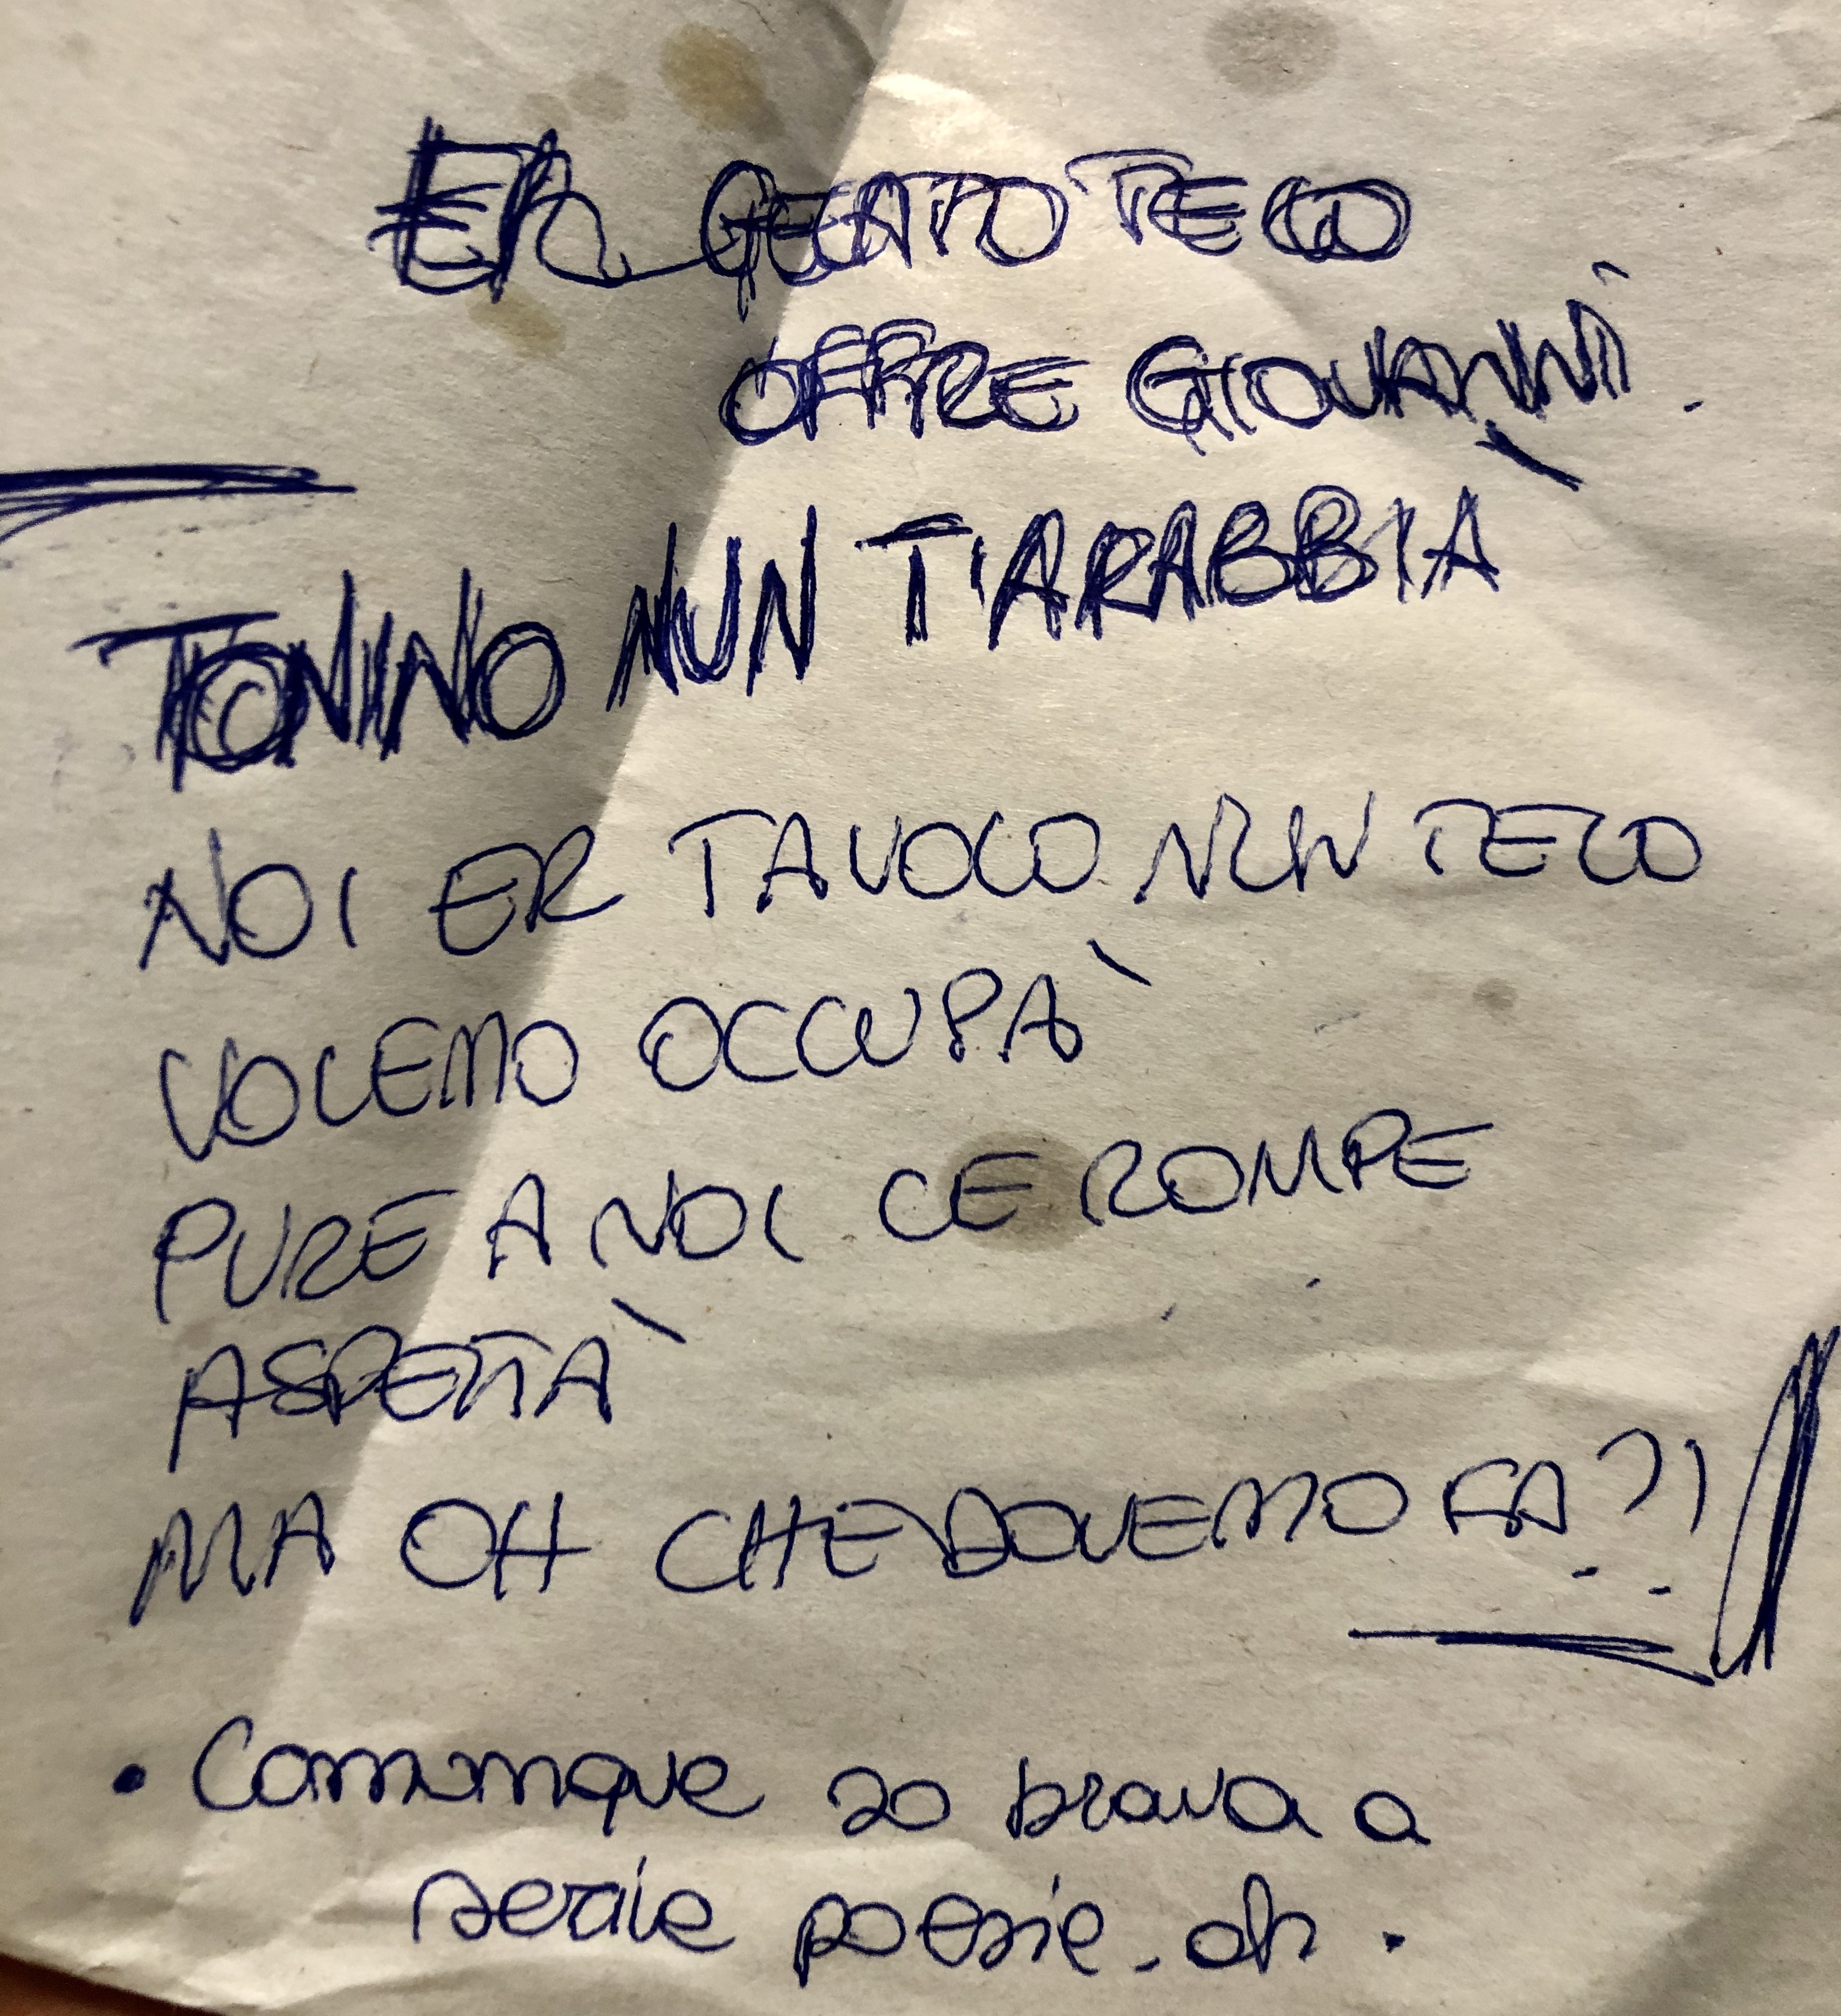 ER GELATO TELO
OFFRE GIOVANNI.
TONINO NUN T'ARABBIÀ
NOI ER TAVOLO NUN TELO
VOLEMO OCCUPÀ
PURE A NOI CE ROMPE
ASPETTÀ
MA OH CHE DOVEMO FA?!
• Comunque so brava a
scrive poesie. oh.